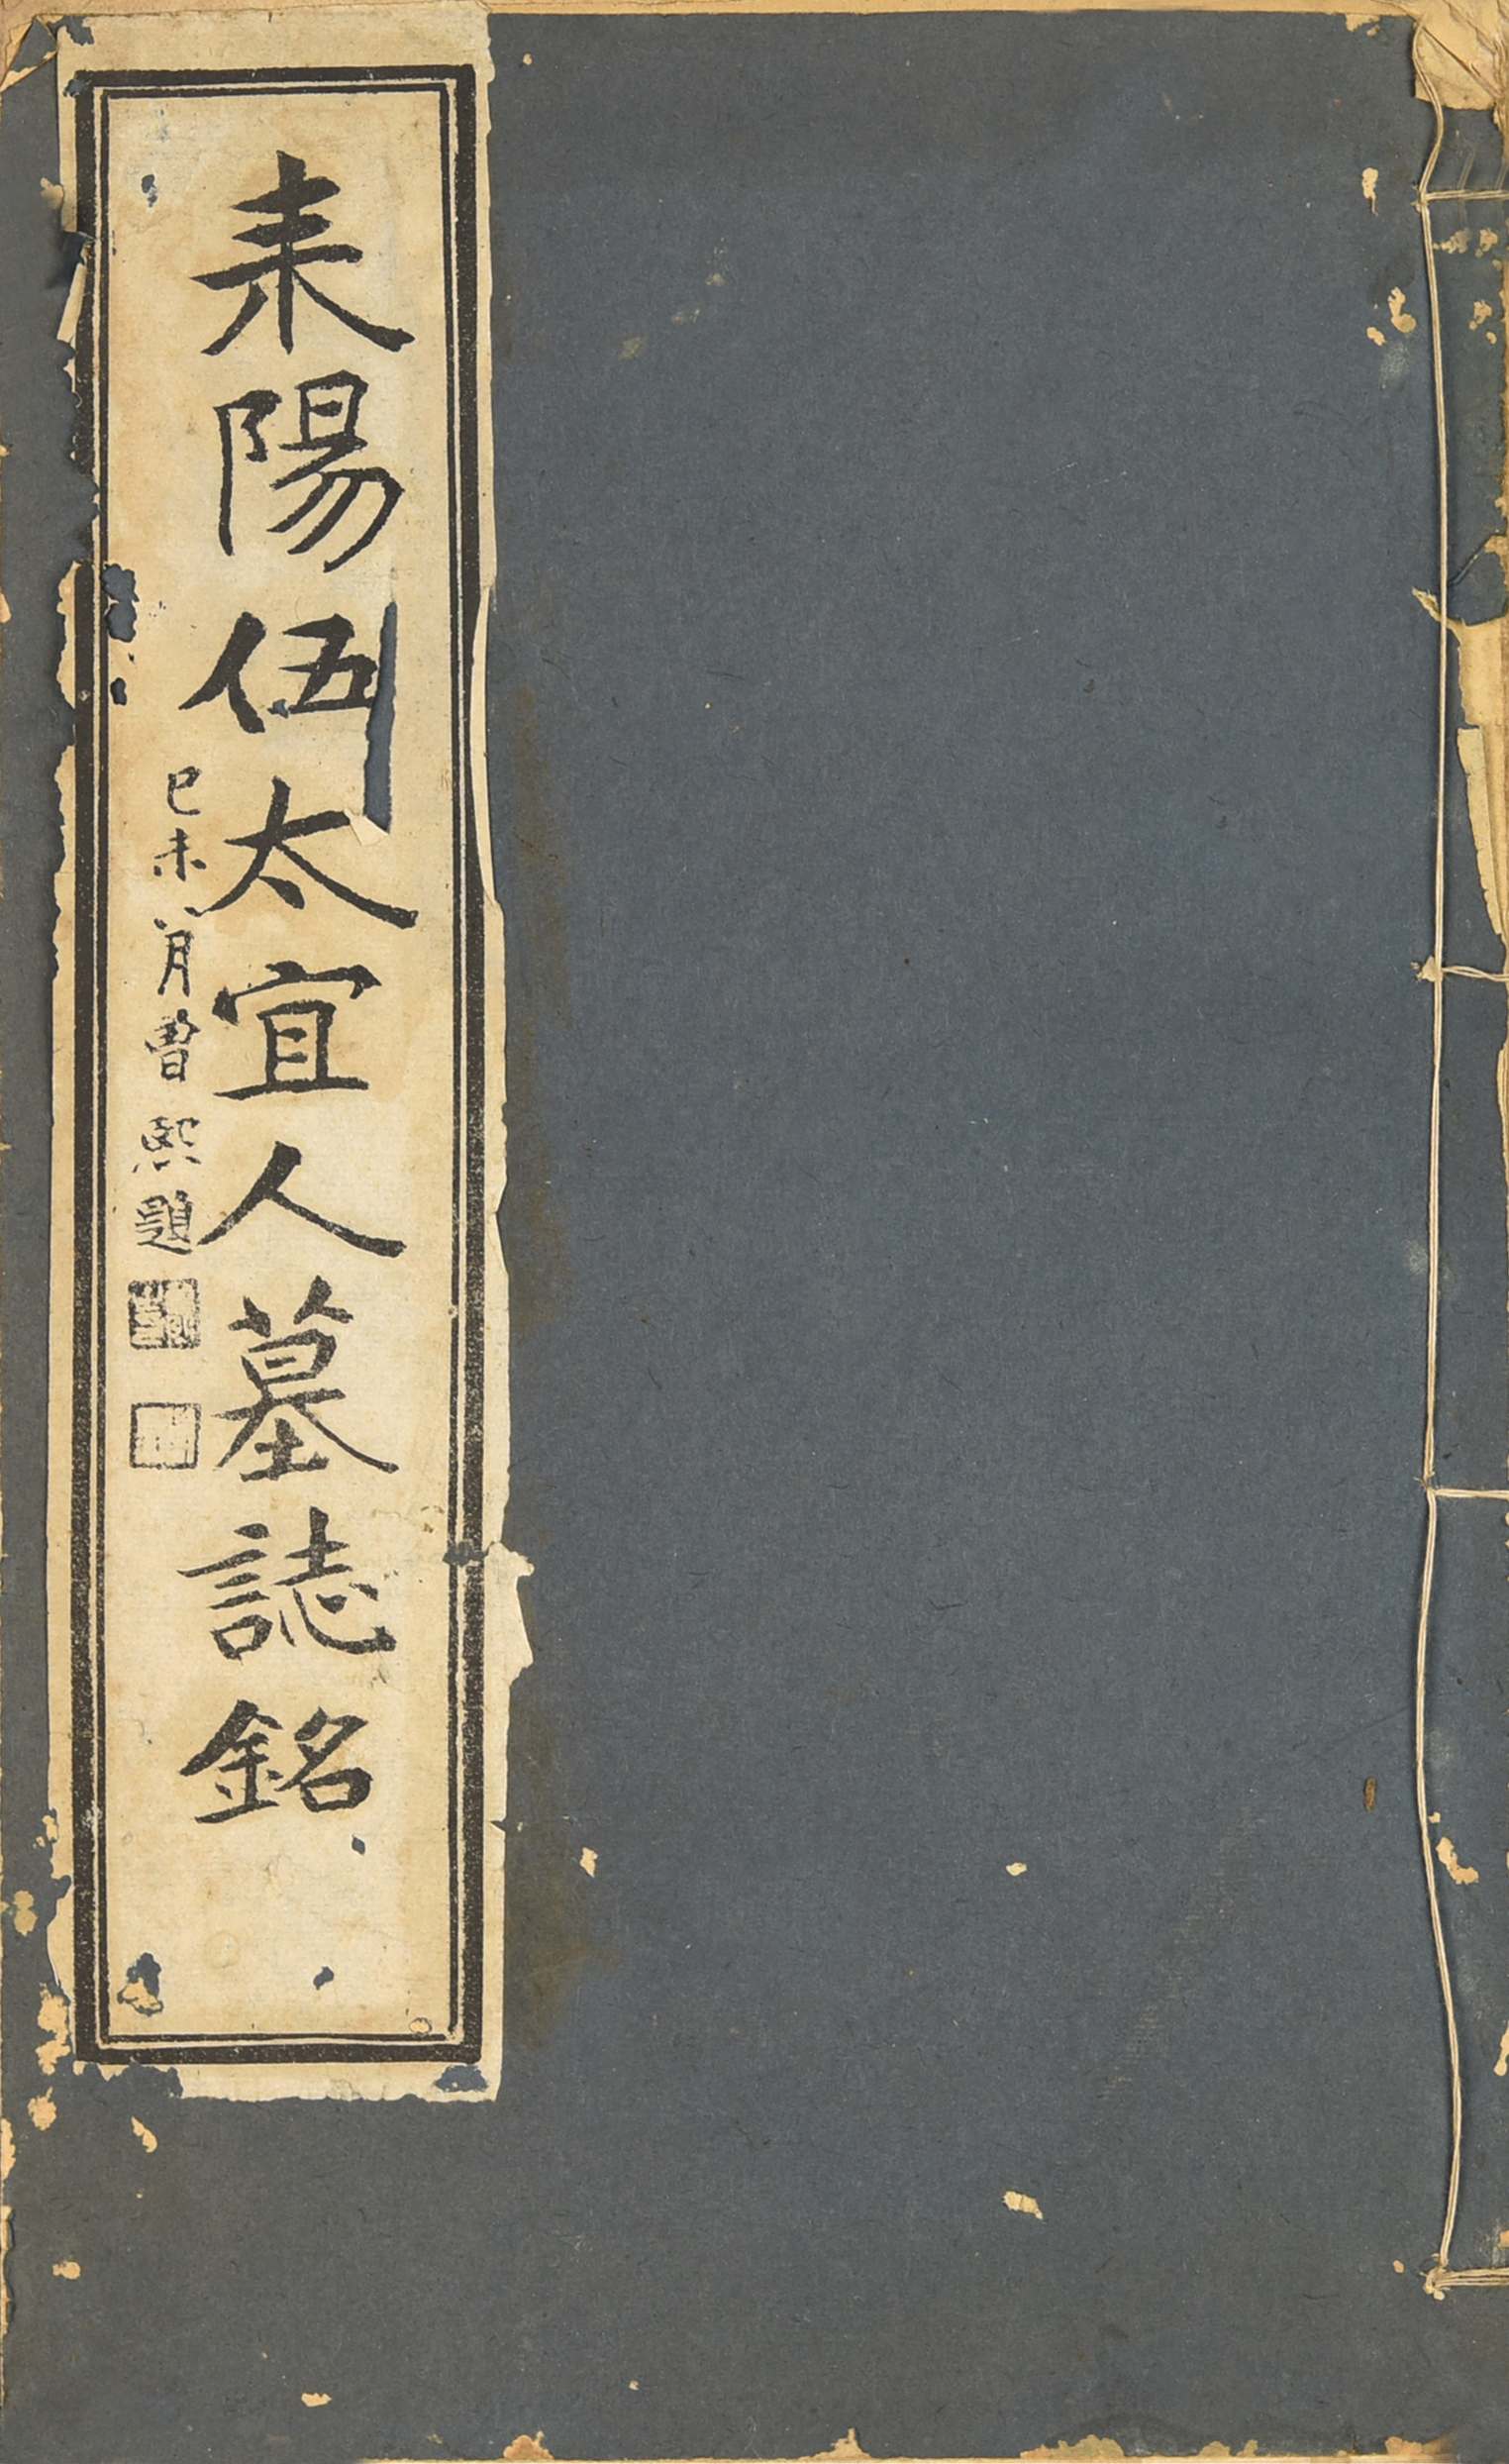 耒陽伍太宜人墓誌銘
己未八月曾熙題